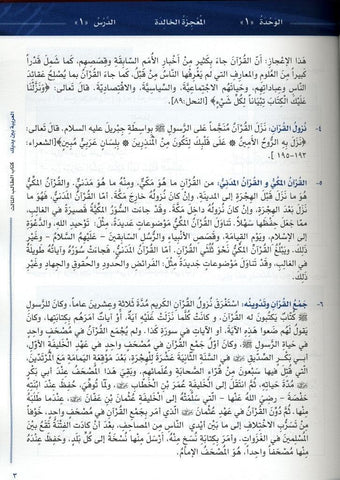 الوحدة «١» المعجزة الخالدة الدرس «١»
هذا الإعجاز: أنّ القُرآنَ جاءَ بكثيرٍ مِنْ أخبارِ الأُمَمِ السابقةِ وقِصصِهم، كما شملَ قَدْراً
كبيراً مِنَ العلومِ والمعارفِ التي لم يَعْرِفْها الناسُ مِنْ قَبْلُ. كما جاءَ القُرْآنُ بما يُصْلِحُ عقائدَ
الناسِ وعباداتِهم، وحياتَهم الاجتماعيةَ، والسياسيّةَ، والاقتصاديّةَ. قال تعالى: ﴿وَنَزَّلْنَا
عَلَيْكَ الكِتَابَ تِبْيَاناً لِكُلِّ شَيْءٍ﴾ [النحل:٨٩].
٤- نُزولُ القُرآنِ: نَزَلَ القُرآنُ مُنَجَّماً على الرَّسولِ ﷺ بواسِطةِ جِبْريلَ عليه السلام. قالَ تعالى:
﴿نَزَلَ بِهِ الرُّوحُ الأَمِينُ ۞ عَلَى قَلْبِكَ لِتَكُونَ مِنَ الْمُنْذِرِينَ ۞ بِلِسَانٍ عَرَبِيٍّ مُبِينٍ﴾[الشعراء:
١٩٣-١٩٥].
٥- القرآنُ المكِّيُّ و القُرآنُ المَدَنِيُّ: من القُرآنِ ما هُوَ مَكِّيٌّ، ومِنْهُ ما هُوَ مَدَنِيٌّ. والقُرآنُ المكِّيُّ
هُوَ ما نَزَلَ قَبْلَ الهِجْرةِ إلى المدينةِ، وإنْ كانَ نُزولُهُ خارِجَ مكّةَ. أمّا القُرآنُ المَدَنِيُّ، فَهُوَ ما
نَزَلَ بَعْدَ الهِجْرةِ، وإنْ كانَ نُزولُهُ داخِلَ مكّةَ. وقد جاءَتِ السُّوَرُ المكِّيَّةُ قصيرةً في الغالِبِ،
ممّا جَعَلَ حِفْظَها سَهْلاً. تناوَلَ القُرآنُ المكِّيُّ مَوْضوعاتٍ عَديدةً، مِثْلَ: تَوْحيدِ اللهِ، والدَّعْوةِ
إلى الإسلامِ، ويَوْمِ القِيامةِ، وقَصَصِ الأنبياءِ والرُّسُلِ السابقينَ – عَلَيْهِمُ السَّلامُ – وغَيْرِ
ذلك. ويَبْلُغُ القُرآنُ المكِّيُّ نَحْوَ ثُلُثَيِ القُرآنِ. أمّا القُرآنُ المَدَنِيُّ، فجاءَتْ سُوَرُهُ وآياتُهُ طويلةً
في الغالِبِ، وقد تناوَلَ مَوْضوعاتٍ جَديدةً، مِثْلَ: الفرائضِ والحُدودِ والحُقوقِ والجِهادِ وغَيْرِ
ذلك.
٦- جَمْعُ القُرآنِ وتَدْوينُه: اسْتَغْرَقَ نُزولُ القُرآنِ الكريمِ مُدّةَ ثَلاثةٍ وعِشْرينَ عاماً. وكانَ للرَّسولِ
ﷺ كُتّابٌ يَكْتُبونَ لَهُ القُرآنَ، وكانَتْ كُلَّما نَزَلَتْ عَلَيْهِ آيةٌ، أَوْ آياتٌ أمَرَهُمْ بِكِتابَتِها،
يقولُ لَهُمْ ضَعوا هذِهِ الآيةَ، أَو الآياتِ في سورةِ كَذا. ولَمْ يُجْمَعِ القُرآنُ في مُصْحَفٍ واحِدٍ
في حَياةِ الرَّسولِ ﷺ. وكانَ أوَّلُ جَمْعٍ لِلْقُرآنِ في مُصْحَفٍ واحِدٍ في عَهْدِ الخَليفةِ الأَوَّلِ،
أبي بَكْرٍ الصِّدّيقِ ﷺ في السَّنةِ الثانيةَ عَشْرةَ لِلْهِجْرةِ، بَعْدَ مَوْقِعةِ اليَمامةِ مَعَ المُرْتَدّينَ،
التي قُتِلَ فيها سَبْعونَ مِنْ قُرّاءِ الصَّحابةِ وعُلَمائِهِم، وبَقِيَ هذا المُصْحَفُ عِنْدَ أبي بَكْرٍ
مُدّةَ حَياتِهِ، ثُمَّ انْتَقَلَ إلى الخَليفةِ عُمَرَ بْنِ الخَطّابِ، ولَمّا تُوُفِّيَ، حُفِظَ عِنْدَ ابْنَتِهِ
حَفْصةَ - رَضِيَ اللهُ عَنْها - الّتي سَلَّمَتْهُ إلى الخَليفةِ عُثْمانَ بْنِ عَفّانَ، عِنْدَما طَلَبَهُ
مِنْها. ثُمَّ دُوِّنَ القُرآنُ في عَهْدِ عُثْمانَ الَّذي أمَرَ بِجَمْعِ القُرآنِ في مُصْحَفٍ واحِدٍ، خَوْفاً
مِنْ تَسَرُّبِ الاخْتِلافِ إلى ما بَيْنَ أيْدي الناسِ مِنَ المَصاحِفِ، بَعْدَ أنْ كادَتِ الفِتْنةُ تَقَعُ بَيْنَ
المُسْلِمينَ في الغَزَواتِ. وأمَرَ بِكِتابةِ نُسَخٍ مِنْهُ، أرْسَلَ مِنْها نُسْخةً إلى كُلِّ بَلَدٍ، وحَفِظَ عِنْدَهُ
مِنْها مُصْحَفاً واحِداً، هُوَ المُصْحَفُ الإمامُ.
العربية بين يديك كتاب الطالب الثالث
٣